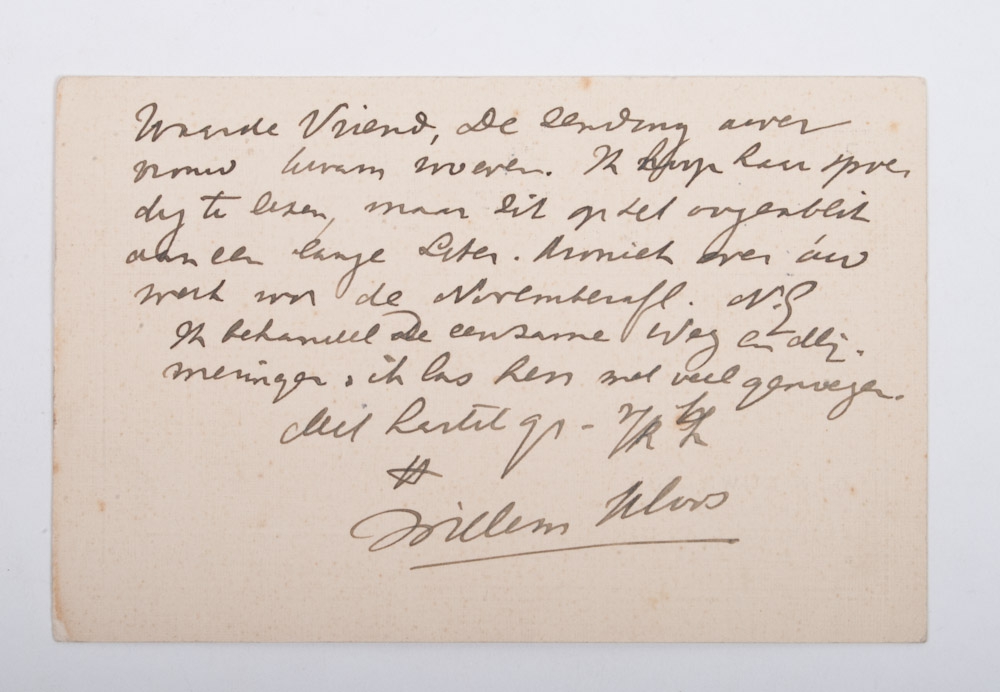 Waarde Vriend, De zending aan
vrouw kwam over. Ik hoop haar spoe
dig te lezen, maar zit op het oogenblik
aan een lange Liter. Kroniek over úw
werk voor de Novemberafl. N.G
Ik behandel De eenzame Weg en
meeningen, ik las hen met veel genoegen.
Met hartel gr -
Willem Kloos